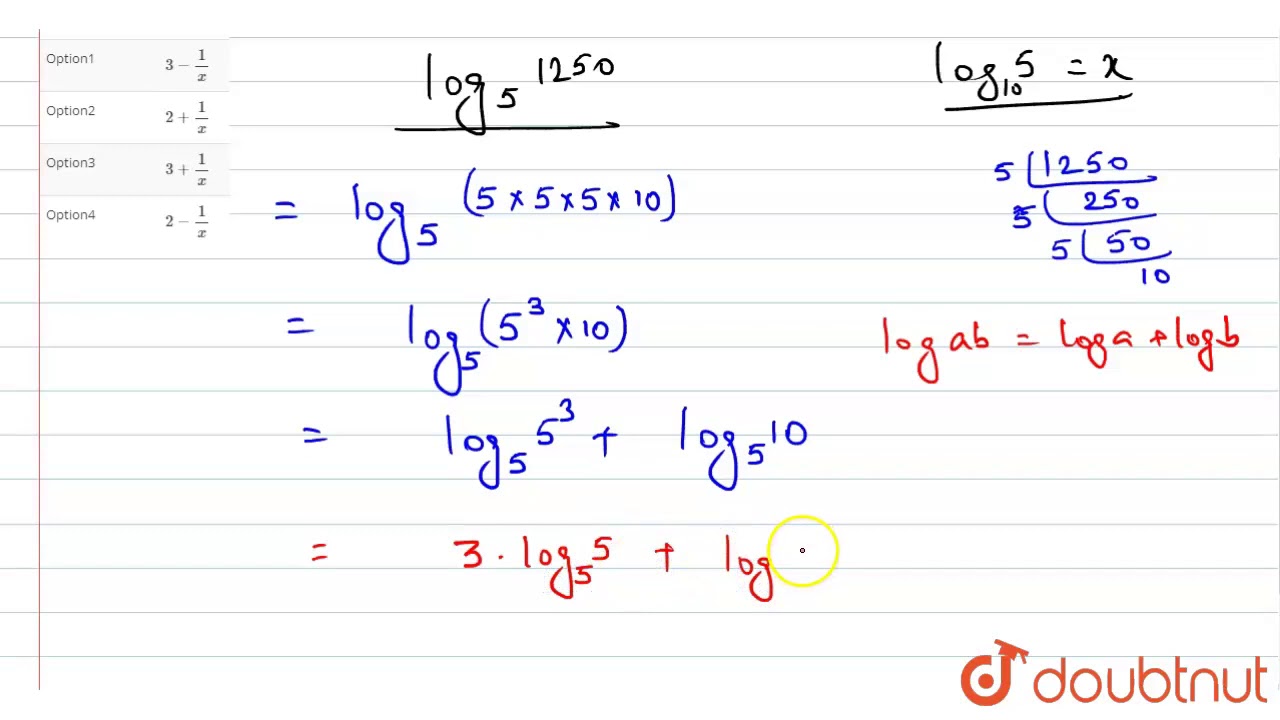 Option1 3 − 1/x
Option2 2 + 1/x
Option3 3 + 1/x
Option4 2 − 1/x
log₅ 1250
log₁₀ 5 = x
= log₅ (5 × 5 × 5 × 10)
5 | 1250
5 | 250
5 | 50
10
= log₅ (5³ × 10)
log ab = log a + log b
= log₅ 5³ + log₅ 10
= 3 · log₅ 5 + log
doubtnut